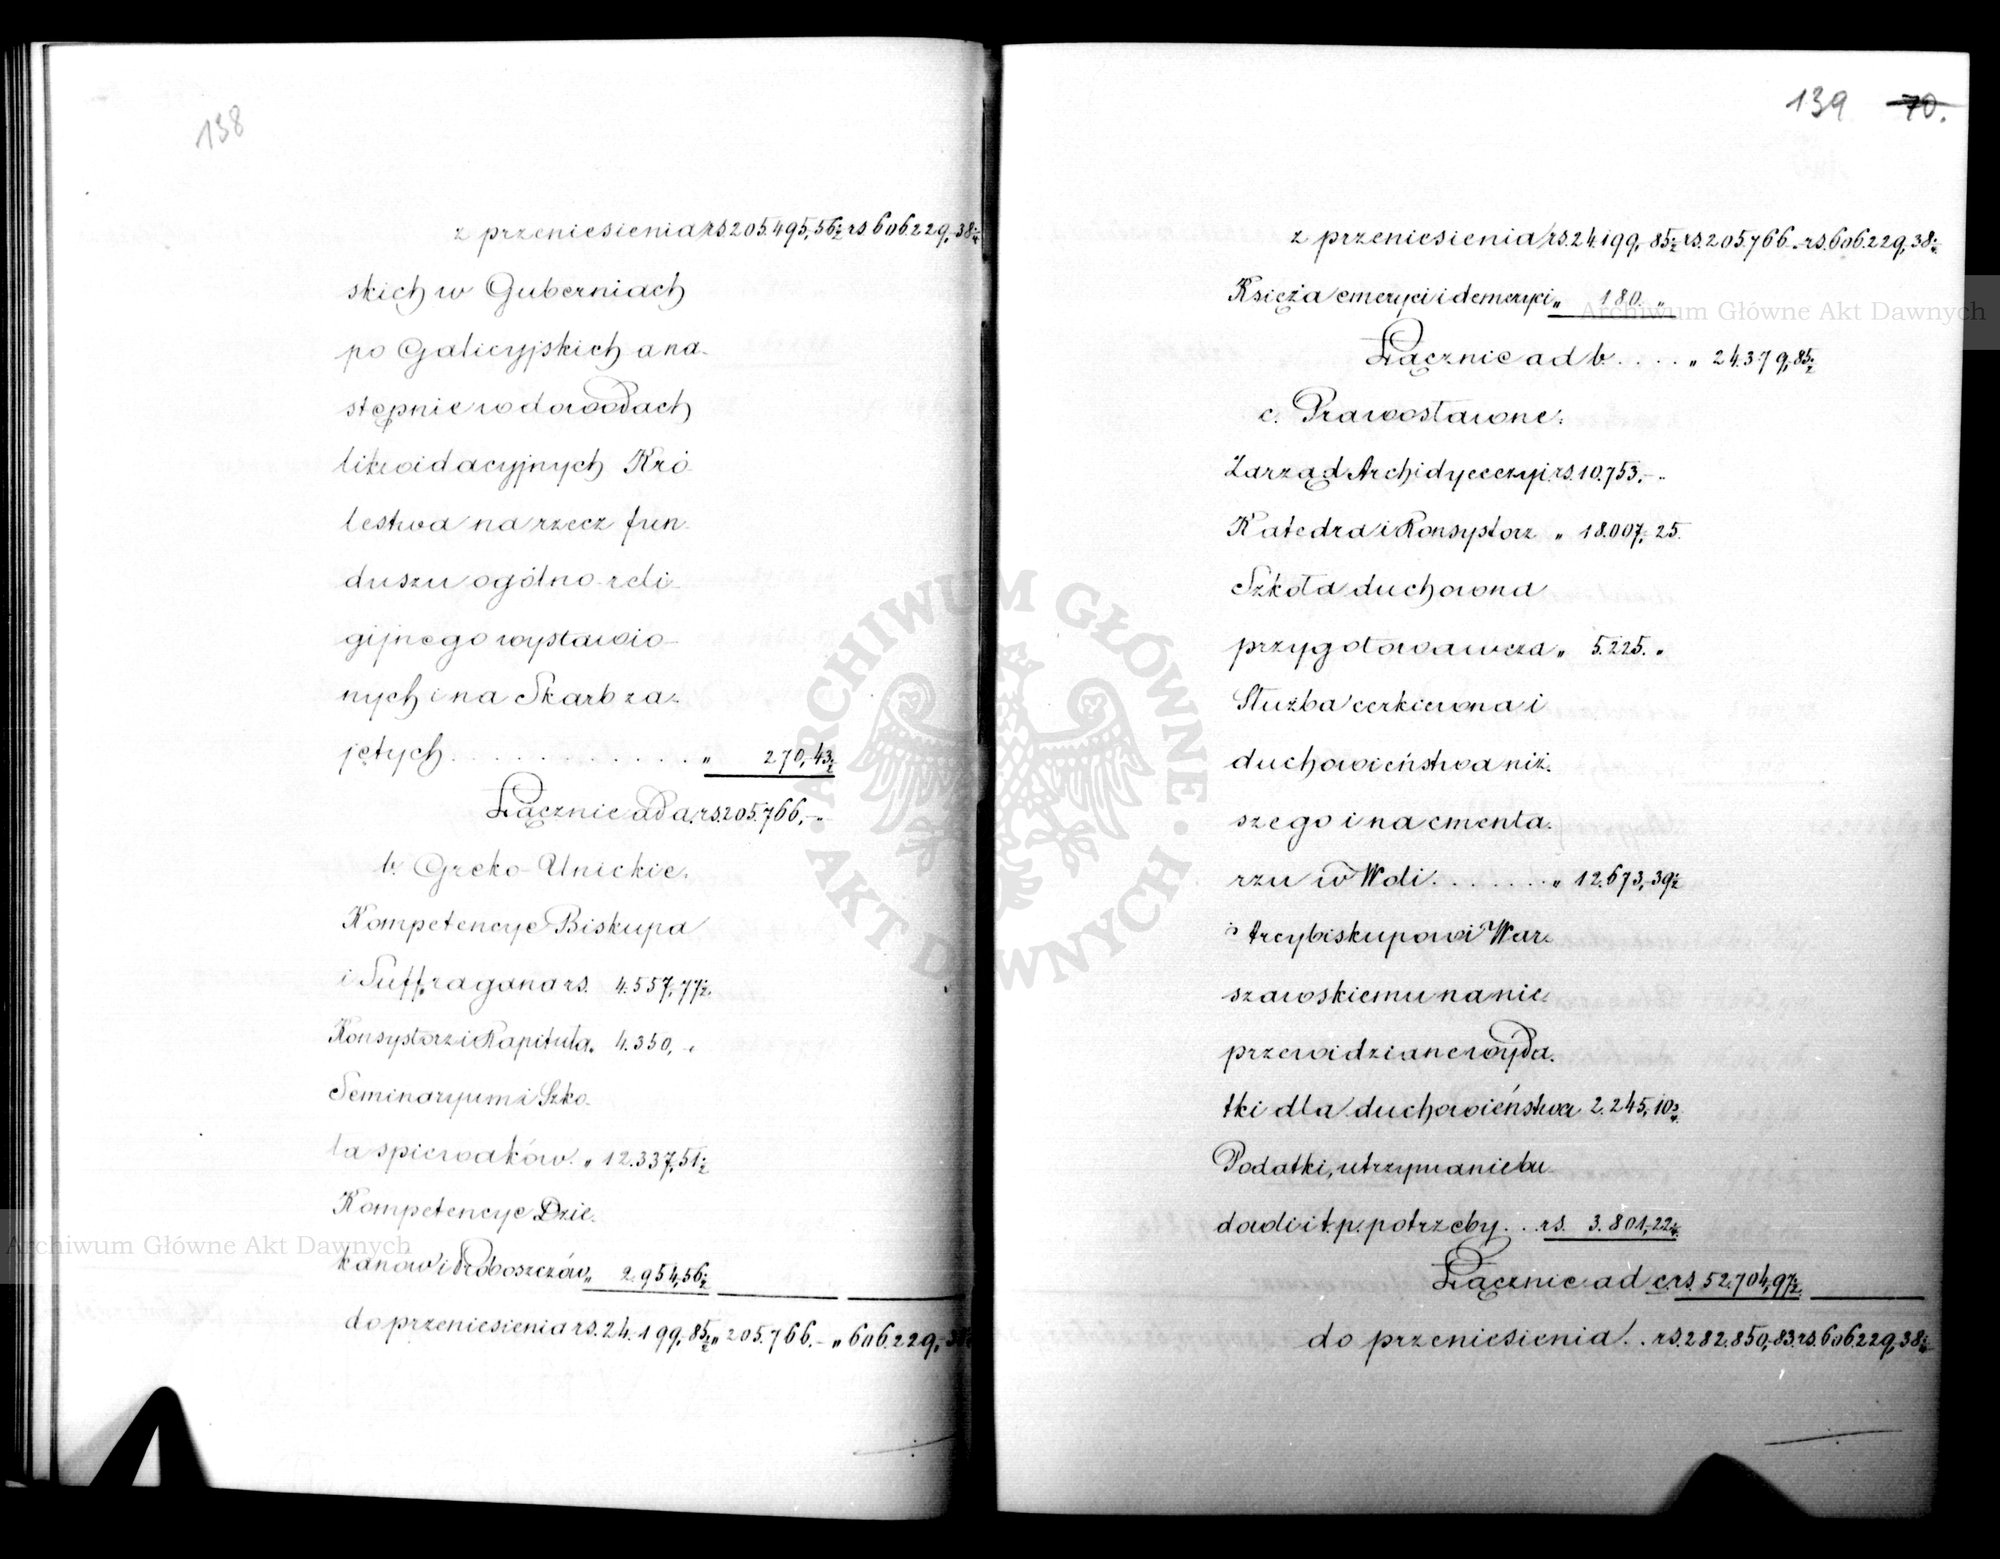 138
z przeniesienia rs. 205.495,56½ rs. 606.229,38
skich w Guberniach
po Galicyjskich a na-
stępnie w dowodach
likwidacyjnych Kró-
lestwa na rzecz fun-
duszu ogólno-reli-
gijnego wystawio-
nych i na Skarb za-
jętych . . . . . . . . . . . . „ 270,43½
Łącznie ad a. rs. 205.766,-„
b. Greko-Unickie.
Kompetencye Biskupa
i Suffragana rs. 4.557,77½
Konsystorz i Kapituła „ 4.350,-„
Seminaryum i Szko-
ła śpiewaków „ 12.337,51½
Kompetencye Dzie-
kanów i Proboszczów „ 2.954,56½
do przeniesienia rs. 24.199,85½ „ 205.766.- „ 606.229,
139 70.
z przeniesienia rs. 24.199,85½ rs. 205.766.- rs. 606.229,38
Księża emeryci i demeryci „ 180. „
Łącznie ad b. . . . . „ 24.379,85½
c. Prawosławne.
Zarząd Archidyecezyi rs. 10.753.-„
Katedra i Konsystorz „ 18.007,25.
Szkoła duchowna
przygotowawcza „ 5.225. „
Służba cerkiewna i
duchowieństwa niż-
szego i na cmenta-
rzu w Woli . . . . . . . „ 12.673,39½
Arcybiskupowi War-
szawskiemu na nie-
przewidziane wyda-
tki dla duchowieństwa 2.245,10
Podatki, utrzymanie bu-
dowli i t. p. potrzeby . . rs. 3.801,22
Łącznie ad c. rs. 52.704,97½
do przeniesienia . . rs. 282.850,83 rs. 606.229,38
ARCHIWUM GŁÓWNE · AKT DAWNYCH ·
Archiwum Główne Akt Dawnych
Archiwum Główne Akt Dawnych